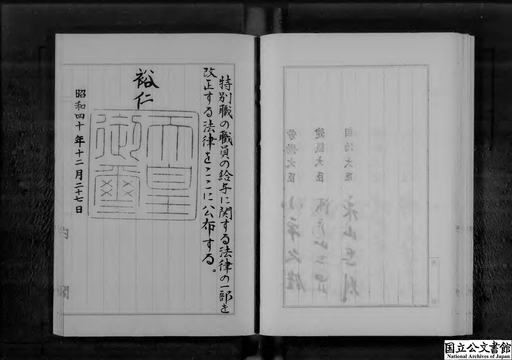 特別職の職員の給与に関する法律の一部を
改正する法律をここに公布する。
裕仁
天皇
御璽
昭和四十年十二月二十七日
内閣
自治大臣
建設大臣
労働大臣
国立公文書館
National Archives of Japan